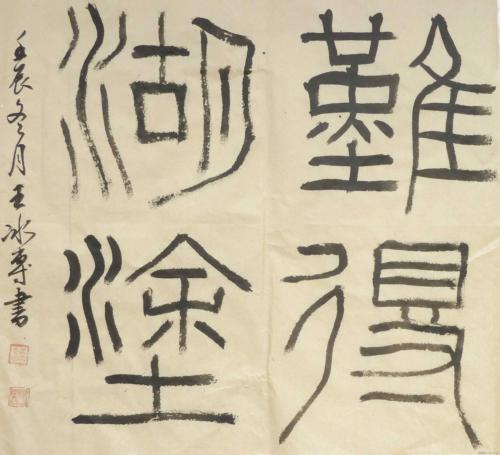 難得
湖塗
壬辰冬月王冰書